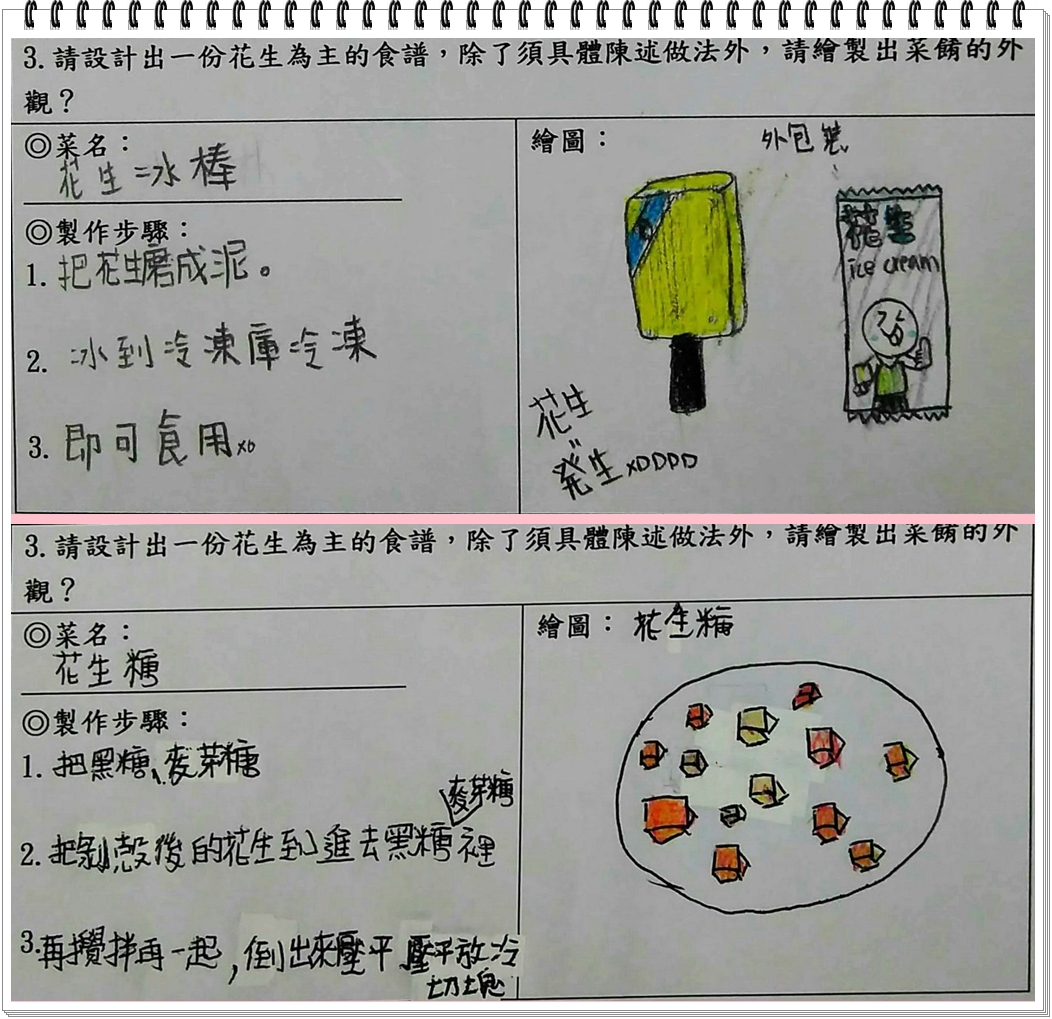 3. 請設計出一份花生為主的食譜，除了須具體陳述做法外，請繪製出菜餚的外
觀？
◎菜名：
花生冰棒
◎製作步驟：
1. 把花生磨成泥。
2. 冰到冷凍庫冷凍
3. 即可食用xD
繪圖：
外包裝
花生
ice cream
花生
發生xDDDD
3. 請設計出一份花生為主的食譜，除了須具體陳述做法外，請繪製出菜餚的外
觀？
◎菜名：
花生糖
◎製作步驟：
1. 把黑糖、麥芽糖
麥芽糖
2. 把剝殼後的花生到進去黑糖裡
3. 再攪拌再一起，倒出來壓平 壓平放冷
切塊
繪圖：花生糖